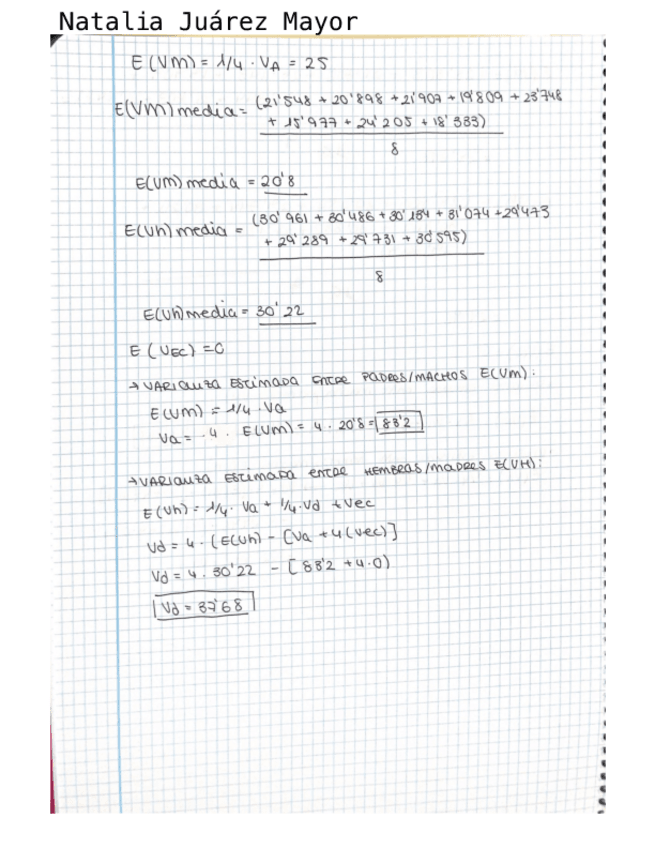 Natalia Juárez Mayor
E(Vm) = 1/4 · VA = 25
E(Vm) media = (21'548 + 20'898 + 21'907 + 19'809 + 23'748
+ 15'977 + 24'205 + 18'383)
8
E(Vm) media = 20'8
E(Vh) media = (30'961 + 30'486 + 30'184 + 31'074 + 29'473
+ 29'289 + 29'731 + 30'595)
8
E(Vh) media = 30'22
E (VEC) = 0
→ VARIANZA ESTIMADA ENTRE PADRES/MACHOS E(Vm):
E(Vm) = 1/4 · Va
Va = 4 · E(Vm) = 4 · 20'8 = 83'2
→ VARIANZA ESTIMADA ENTRE HEMBRAS/MADRES E(VH):
E(Vh) = 1/4 · Va + 1/4 · Vd + Vec
Vd = 4 · (E(Vh) - [Va + 4(Vec)]
Vd = 4 · 30'22 - [83'2 + 4·0)
Vd = 37'68